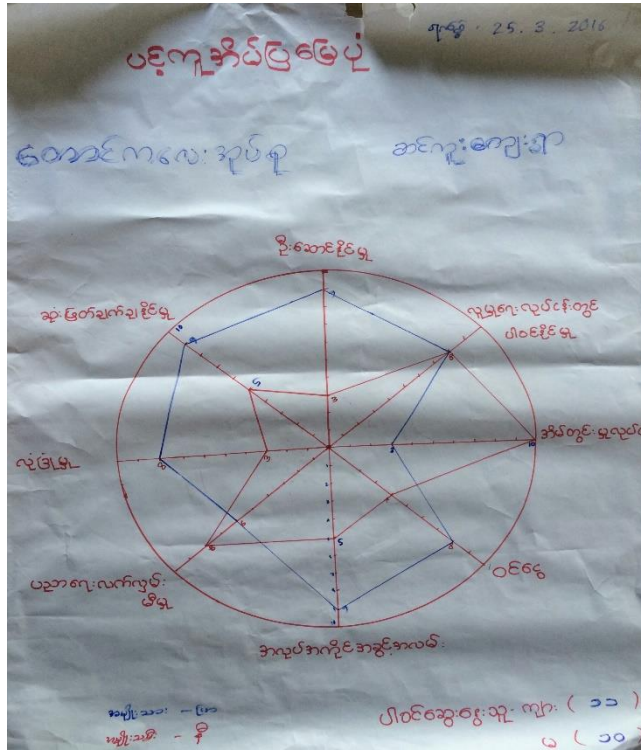 ရက်စွဲ - 25.3.2016
ပင့်ကူအိမ်ပြမြေပုံ
တောင်ကလေးအုပ်စု
ဆင်ကူးကျေးရွာ
ဦးဆောင်နိုင်မှု
ဆုံးဖြတ်ချက်ချနိုင်မှု
လူမှုရေးလုပ်ငန်းတွင်
ပါဝင်နိုင်မှု
အိမ်တွင်းမှုလုပ်
လုံခြုံမှု
ပညာရေးလက်လှမ်း
မီမှု
ဝင်ငွေ
အလုပ်အကိုင်အခွင့်အလမ်း
အမျိုးသား - ပြာ
အမျိုးသမီး - နီ
ပါဝင်ဆွေးနွေးသူ - ကျား ( ၁၁ )
မ ( ၁၀